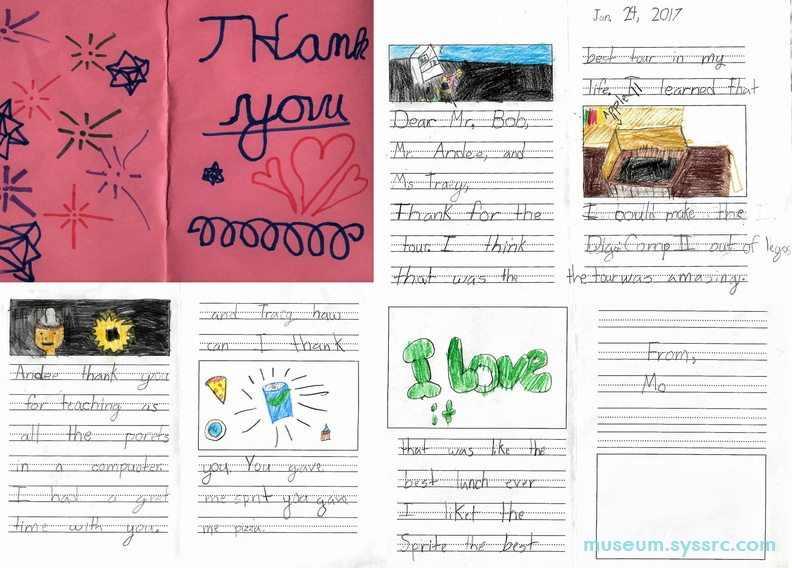 THank
you
Jan. 24, 2017
Dear Mr. Bob,
Mr. Andee, and
Ms Tracy,
Thank for the
tour. I think
that was the
best tour in my
life. I learned that
Apple II
I could make the
Digi Comp II out of legos
the tour was amazing.
Andee thank you
for teaching as
all the porets
in a compuoter.
I had a gret
time with you.
and Tracy haw
can I thank
you. You gave
me sprit you gave
me pizza.
I love
it
that was like the
best lunch ever
I liket the
Sprite the best
From,
Mo
museum.syssrc.com